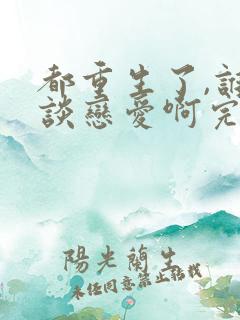 都重生了,誰
談戀愛啊完
陽光蘭生
未經同意禁止轉載